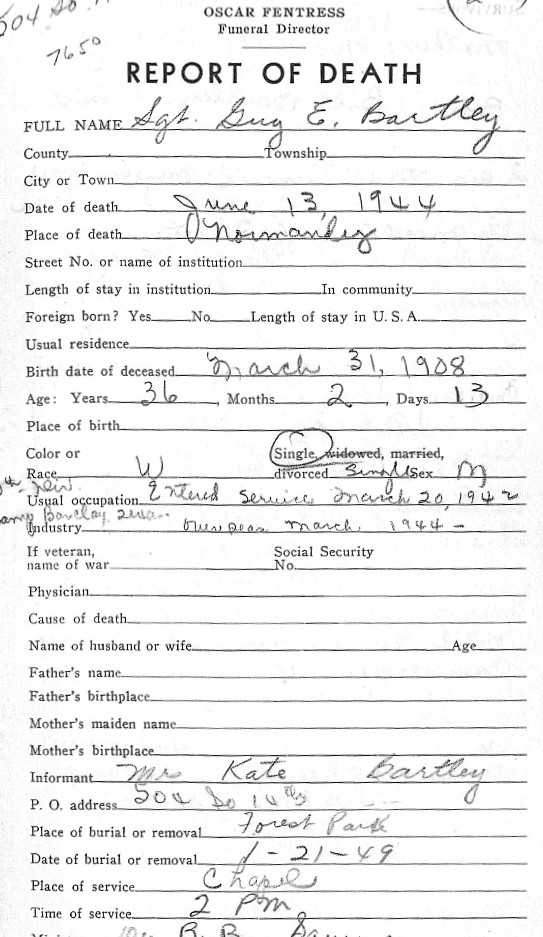 504 So.
OSCAR FENTRESS
Funeral Director
7650
REPORT OF DEATH
FULL NAME Sgt. Guy E. Bartley
County Township
City or Town
Date of death June 13, 1944
Place of death Normandey
Street No. or name of institution
Length of stay in institution In community
Foreign born? Yes No Length of stay in U. S. A.
Usual residence
Birth date of deceased March 31, 1908
Age: Years 36, Months 2, Days 13
Place of birth
Color or Single, widowed, married,
Race W divorced Single Sex M
Usual occupation Entered Service March 20, 1942
Barclay
Industry Overseas March 1944 -
If veteran, Social Security
name of war No.
Physician
Cause of death
Name of husband or wife Age
Father's name
Father's birthplace
Mother's maiden name
Mother's birthplace
Informant Mrs Kate Bartley
P. O. address 504 So 14th
Place of burial or removal Forest Park
Date of burial or removal 1-21-49
Place of service Chapel
Time of service 2 PM
R. B.